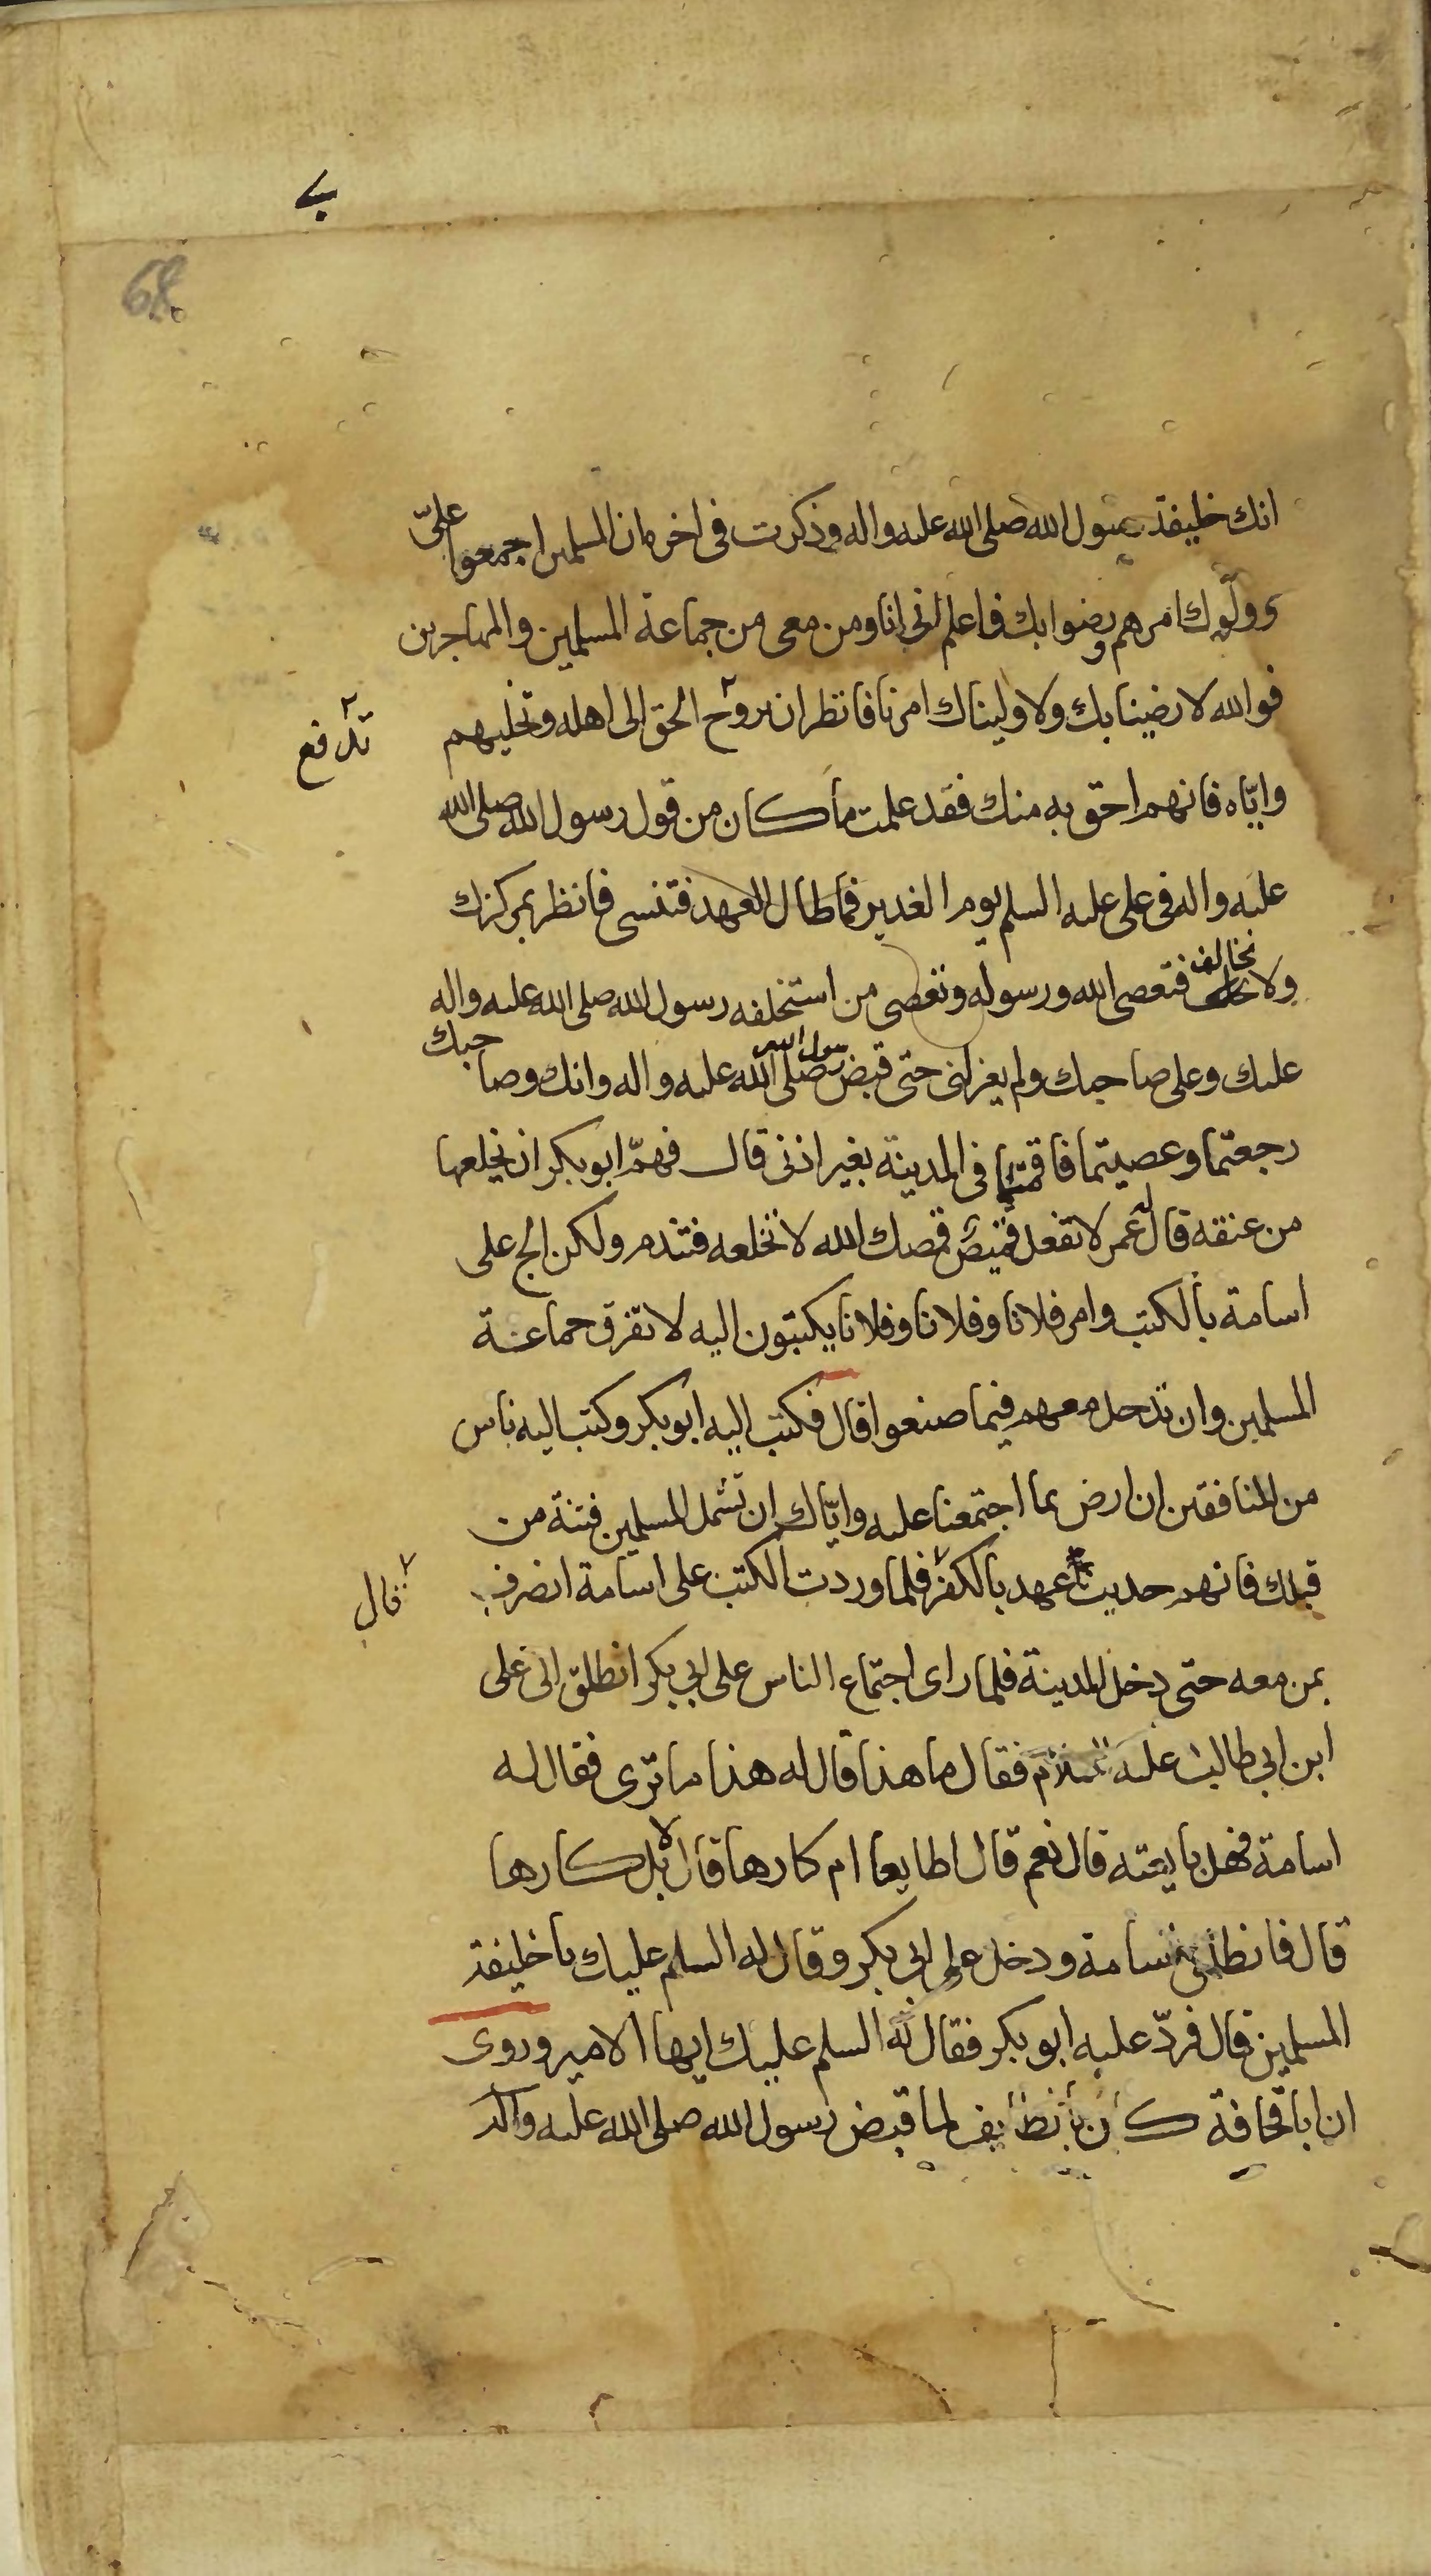 ب
68
انك خليفة رسول الله صلى الله عليه واله وذكرت في اخره ان المسلمين اجمعوا علىّ
ك وولّوك امرهم ورضوا بك فاعلم انى انا ومن معى من جماعة المسلمين والمهاجرين
فوالله لا رضينا بك ولا وليناك امرنا فانظر ان تروح الحق الى اهله وتخليهم
تدفع
وايّاه فانهم احق به منك فقد علمت ما كان من قول رسول الله صلى الله
عليه واله فى على عليه السلم يوم الغدير فما طال العهد فتنسى فانظر بمركزك
ولا تخالف فتعصى الله ورسوله وتعصى من استخلفه رسول الله صلى الله عليه واله
عليك وعلى صاحبك ولم يعزلنى حتى قبض رسول الله صلى الله عليه واله وانك وصاحبك
رجعتما وعصيتما فاقمتما فى المدينة بغير اذنى قال فهمّ ابو بكر ان يخلعها
من عنقه قال له عمر لا تفعل قميص قمصك الله لا تخلعه فتندم ولكن الح على
اسامة بالكتب وامر فلانا وفلانا وفلانا يكتبون اليه لا تفرق جماعة
المسلمين وان تدخل معهم فيما صنعوا قال فكتب اليه ابو بكر وكتب اليه ناس
من المنافقين ان ارض بما اجتمعنا عليه وايّاك ان تشمل المسلمين فتنة من
قبلك فانهم حديث عهد بالكفر فلما وردت الكتب على اسامة انصرف
قال
بمن معه حتى دخل المدينة فلما راى اجتماع الناس على ابى بكر انطلق الى على
ابن ابى طالب عليه السلام فقال ما هذا قال له هذا ما ترى فقال له
اسامة فهل بايعته قال نعم قال اطايعا ام كارها قال لا بل كارها
قال فانطلق اسامة ودخل على ابى بكر وقال له السلم عليك يا خليفة
المسلمين قال فردّ عليه ابو بكر فقال له السلم عليك ايها الامير وروى
ان ابا قحافة كان بالطايف لما قبض رسول الله صلى الله عليه واله